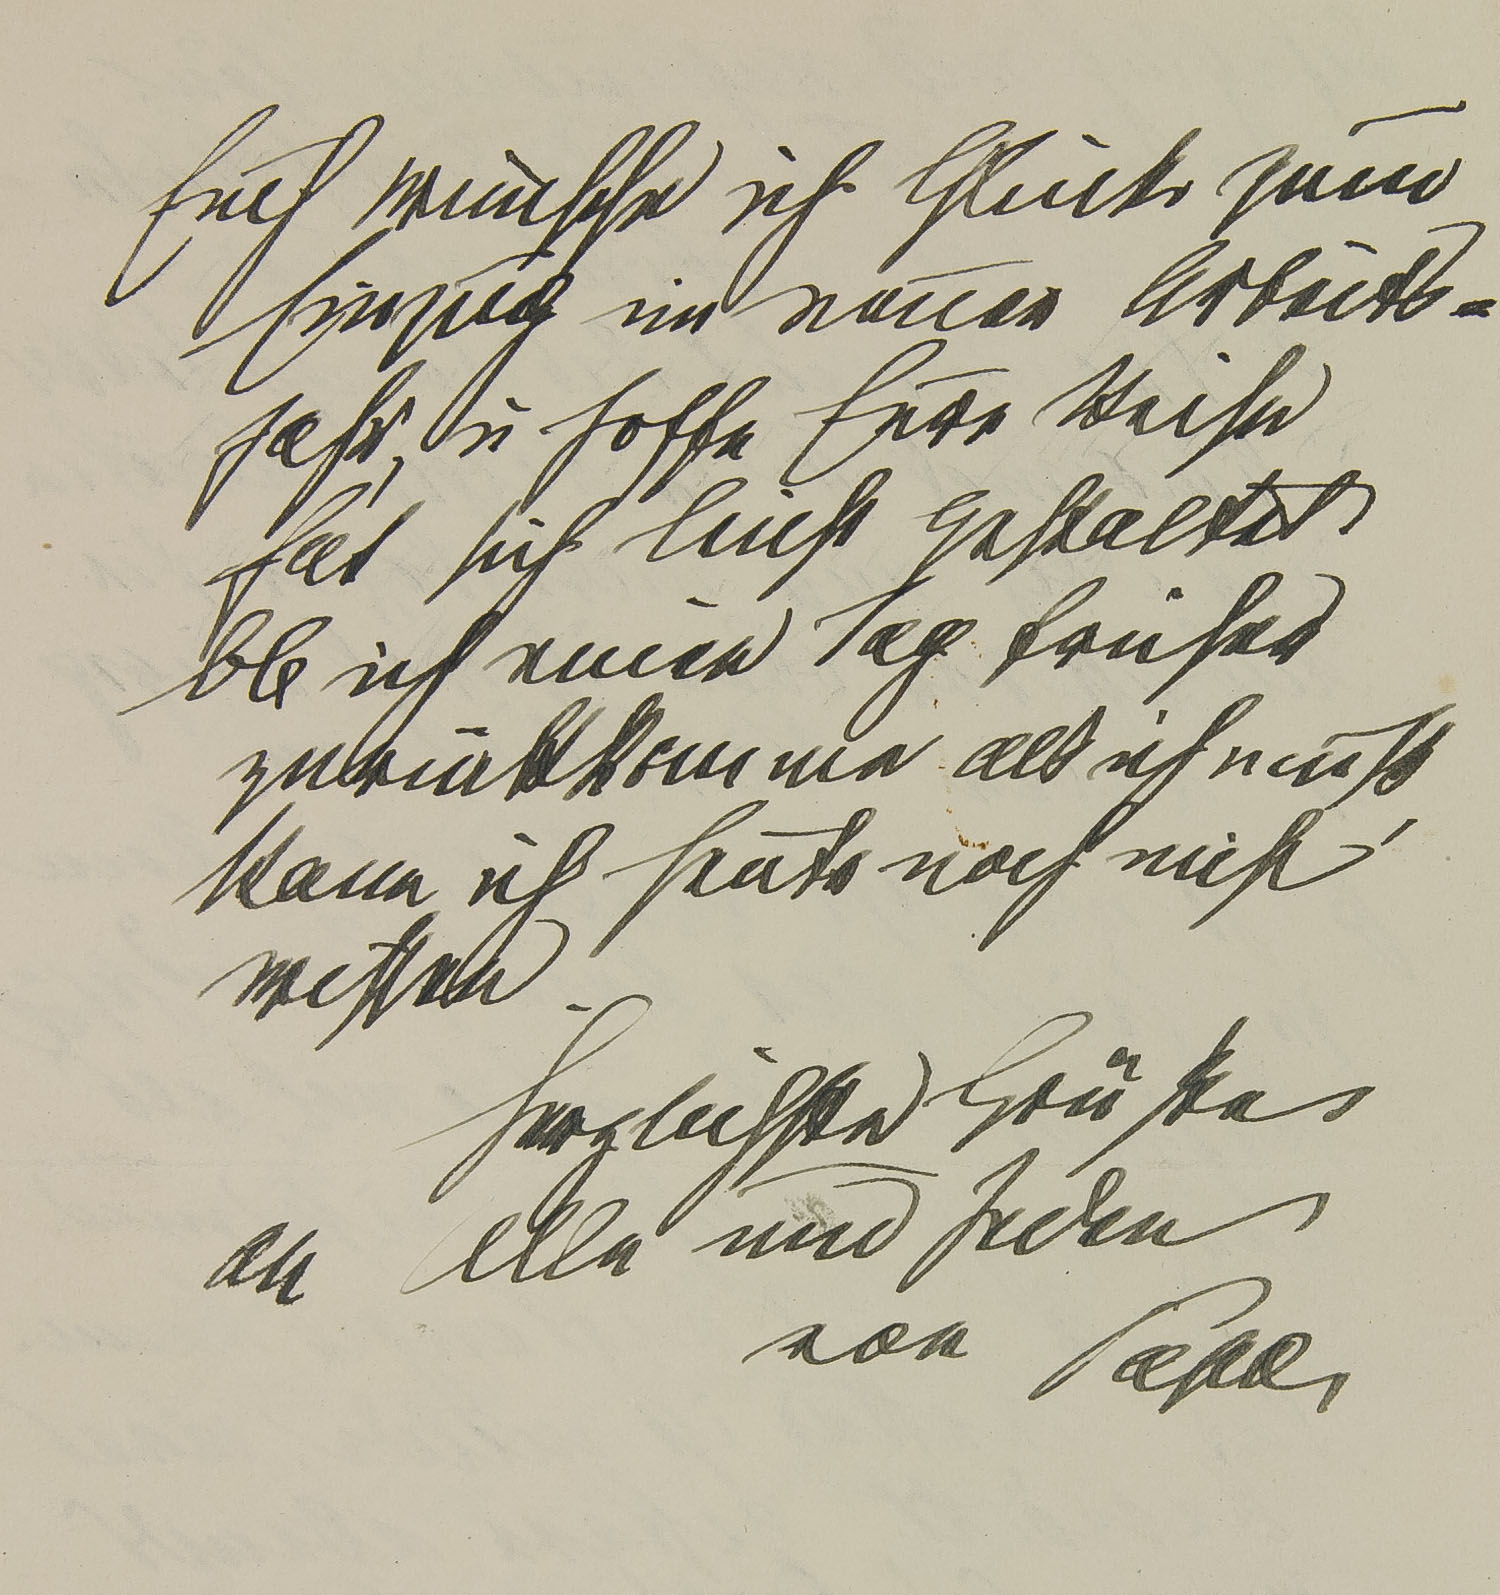 Euch wünsche ich Glück zum
Einzug im neuen Arbeits-
jahr, u hoffe Eure Reise
hat sich leicht gestaltet
Ob ich einen Tag früher
zurückkomme als ich muß
kann ich heute noch nicht
wissen.
Herzlichste Grüße
an Alle und Jeden
von Papa